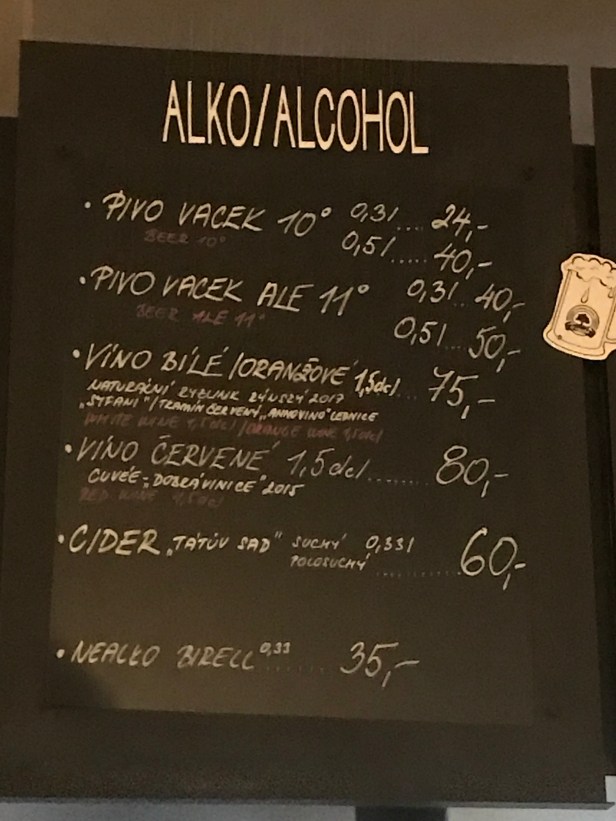 ALKO/ALCOHOL
• PIVO VACEK 10° 0,3l .... 24,-
BEER 10° 0,5l ..... 40,-
• PIVO VACEK ALE 11° 0,3l .. 40,-
BEER ALE 11° 0,5l ... 50,-
• VÍNO BÍLÉ/ORANŽOVÉ 1,5dcl ... 75,-
NATURÁLNÍ RYZLINK RÝNSKÝ 2017
„ŠTFANI"/TRAMÍN ČERVENÝ „ANNOVINO" LEDNICE
WHITE WINE 1,5dcl/ORANGE WINE 1,5dcl
• VÍNO ČERVENÉ 1,5dcl ........ 80,-
CUVÉE-„DOBRÁVINICE" 2015
RED WINE 1,5dcl
• CIDER „TÁTŮV SAD" SUCHÝ 0,33l
POLOSUCHÝ ............ 60,-
• NEALKO BIRELL 0,33 ...... 35,-